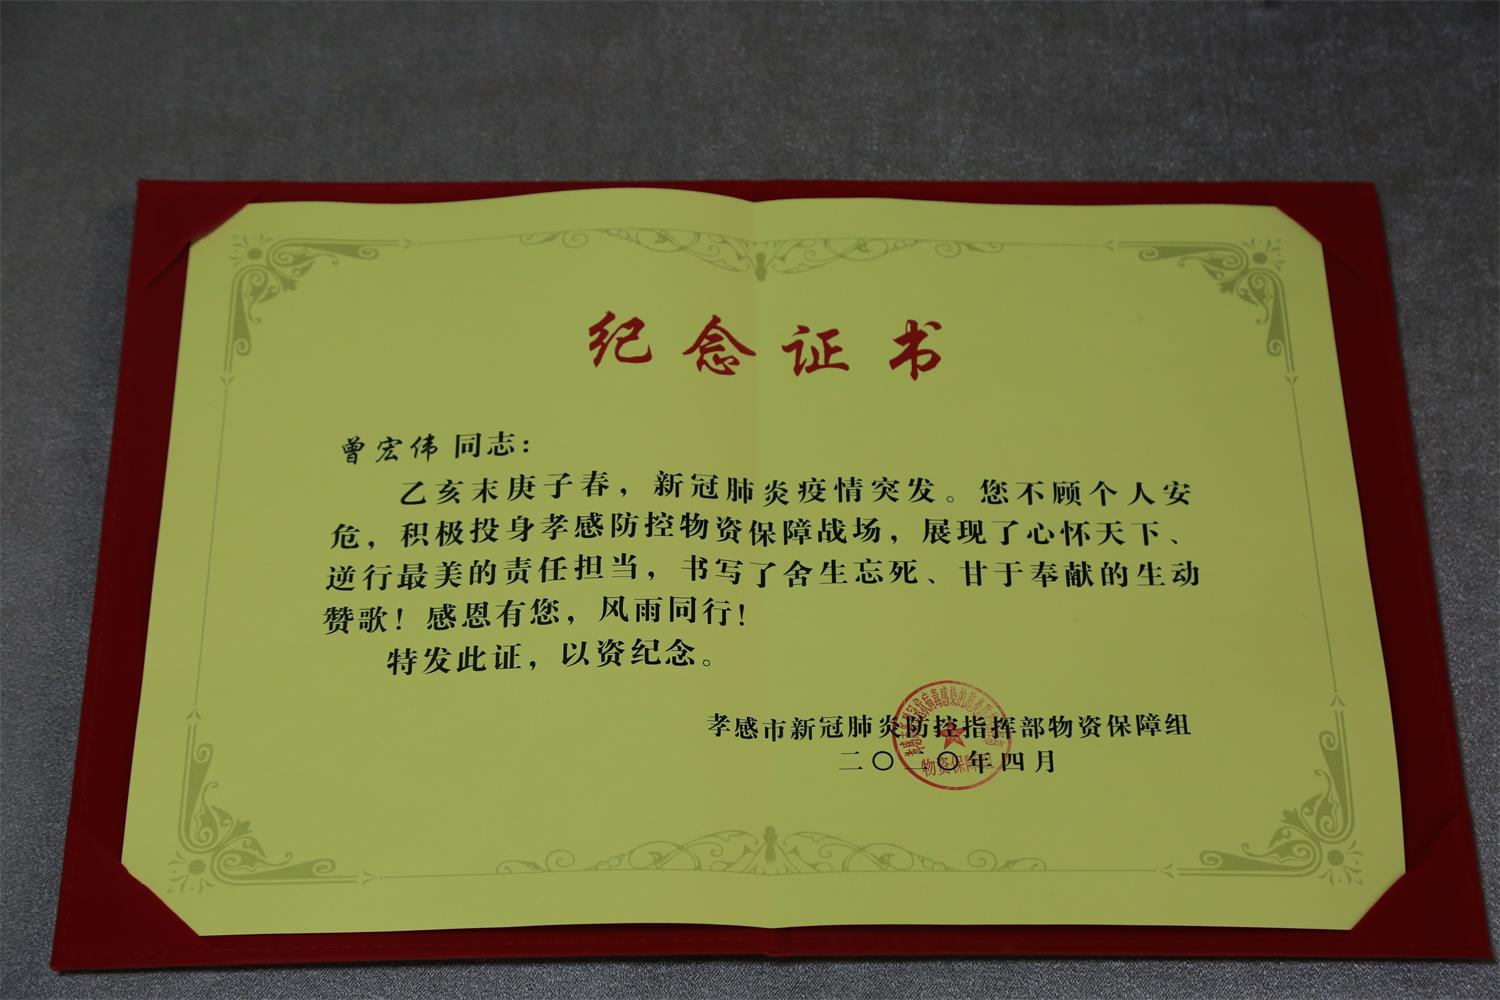 纪念证书
曾宏伟 同志：
乙亥末庚子春，新冠肺炎疫情突发。您不顾个人安
危，积极投身孝感防控物资保障战场，展现了心怀天下、
逆行最美的责任担当，书写了舍生忘死、甘于奉献的生动
赞歌！感恩有您，风雨同行！
特发此证，以资纪念。
孝感市新冠肺炎防控指挥部物资保障组
二〇二〇年四月
物资保障组